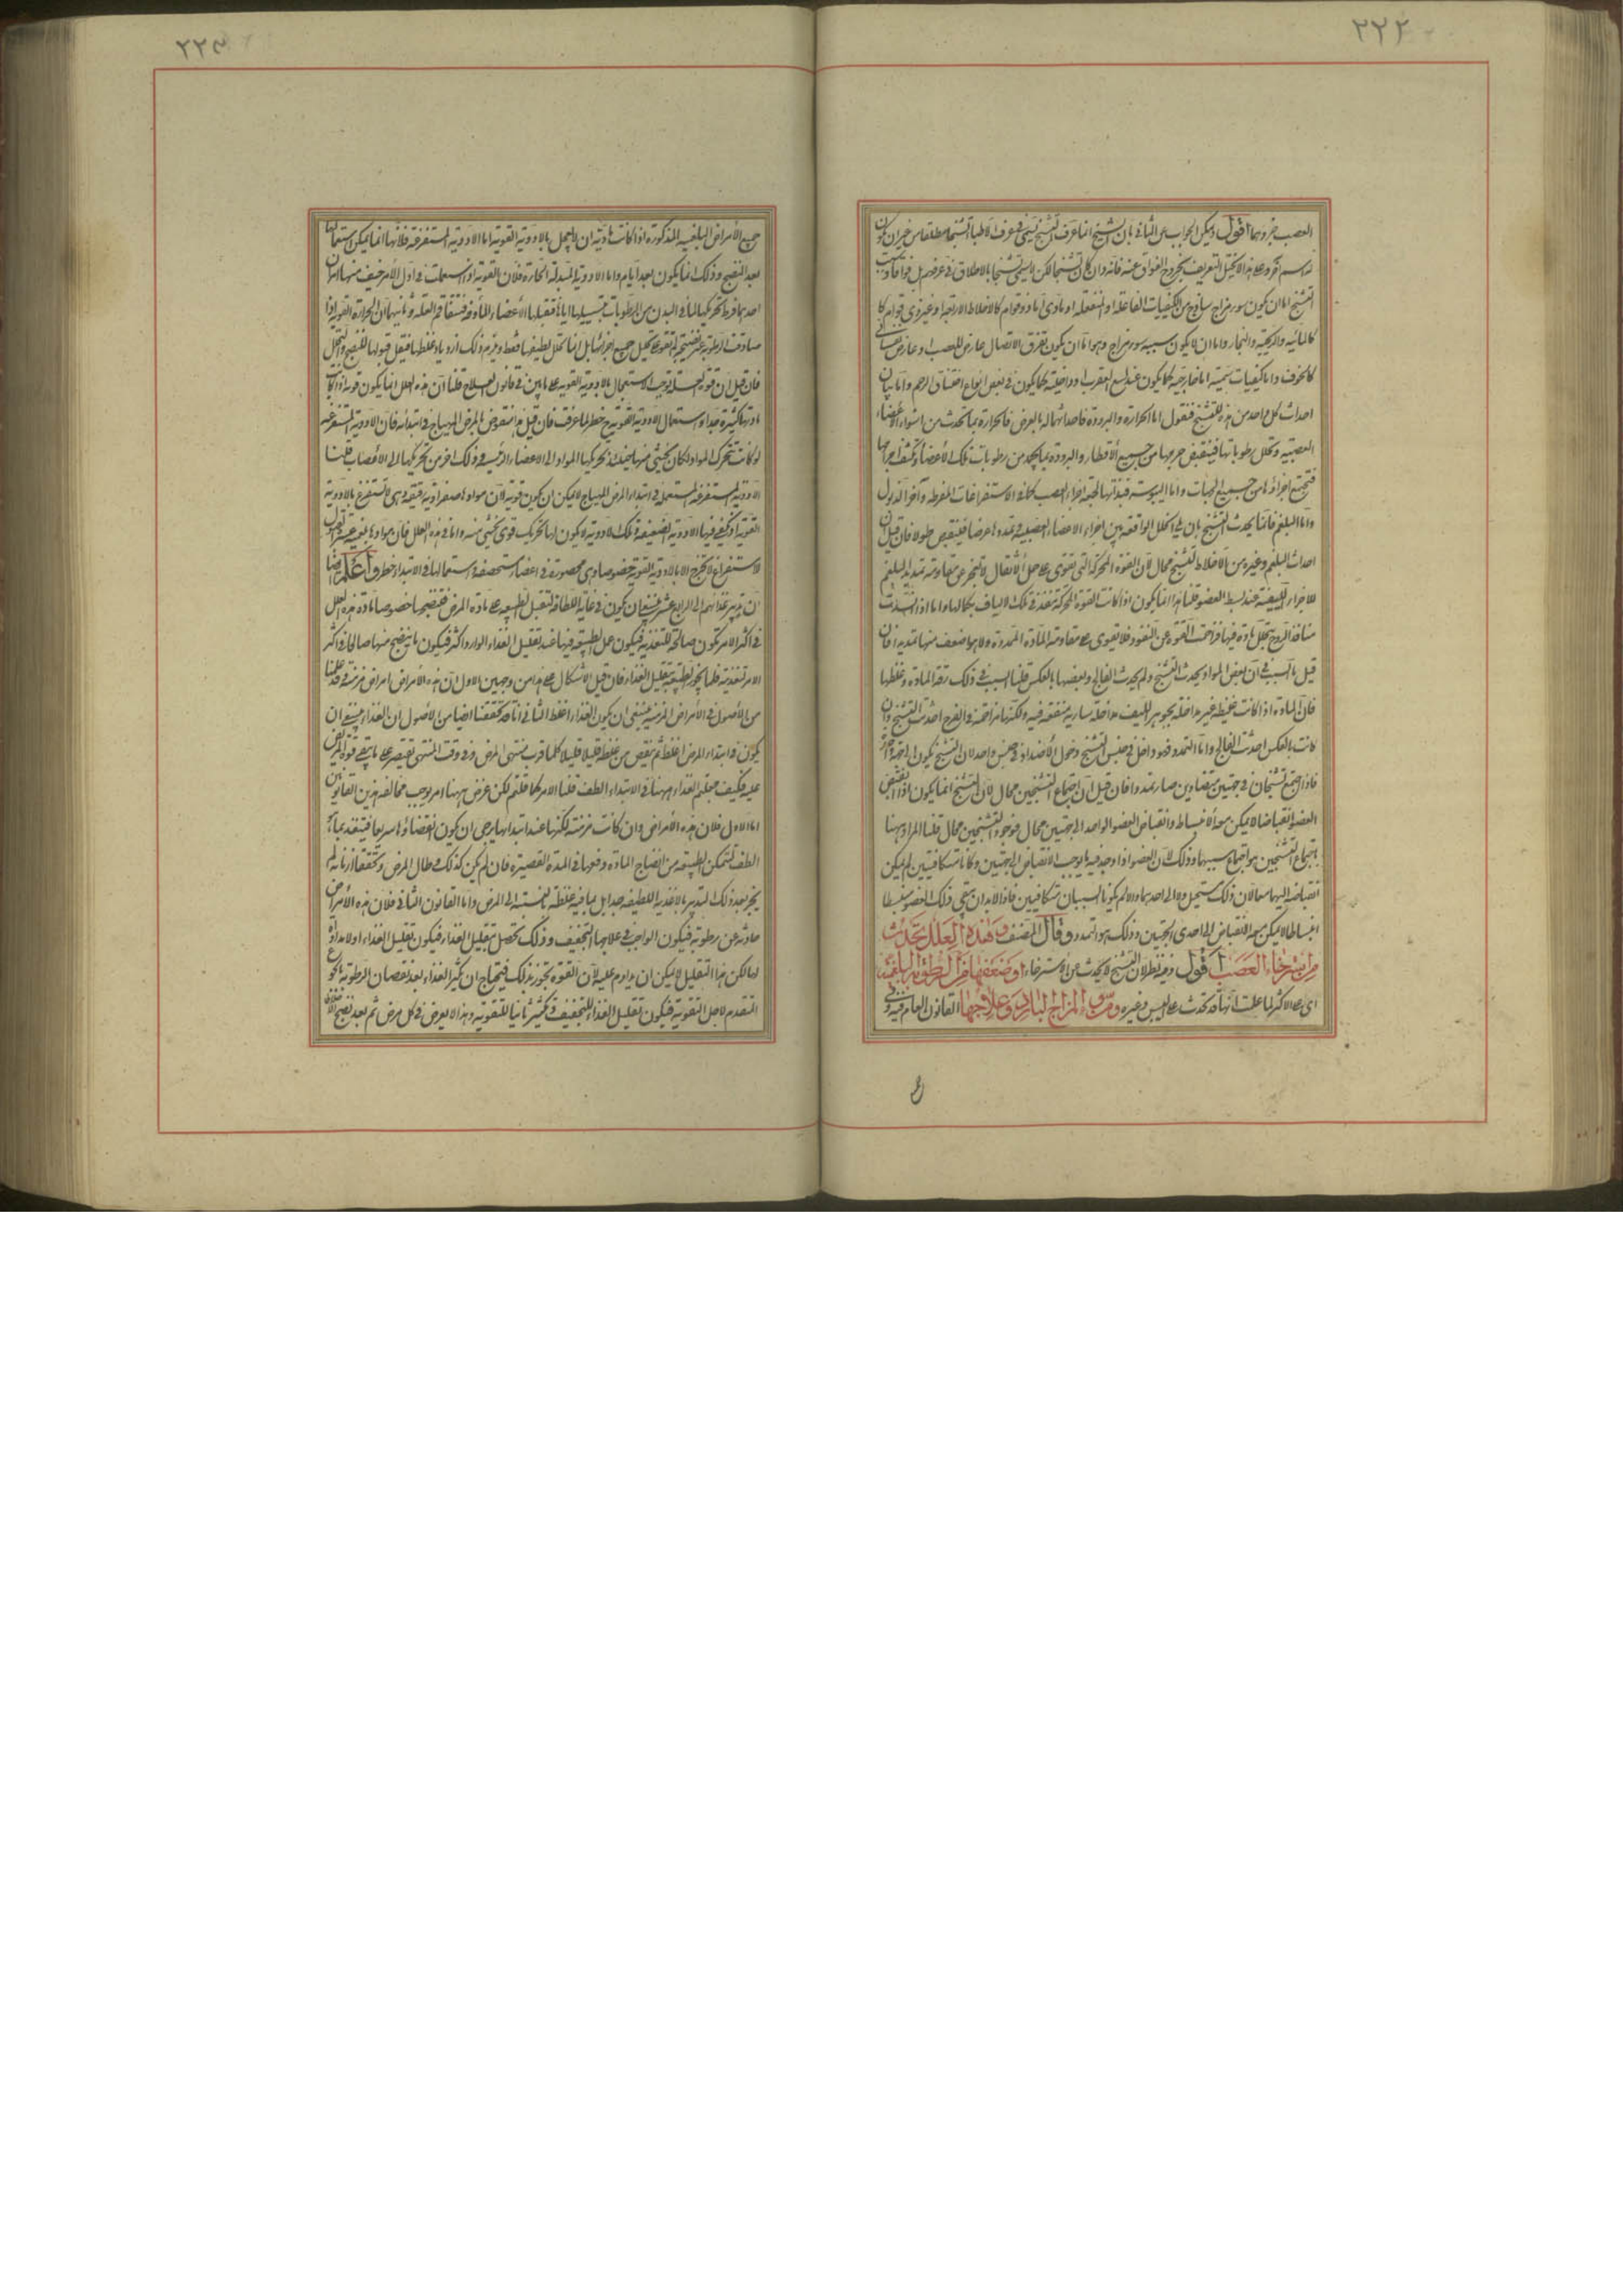 ٢٢٢
العصب جزء وبها اقول ويمكن الجواب عن الثانى بان الشيخ انما عرف التشنج فى عرف الاطباء تشنجا مطلقا من غير ان يكون
له اسم آخر وعلى هذا لا يختل التعريف بخروج الفواق عنه فانه وان كان تشنجا لكن لا يسمى تشنجا بالاطلاق فى عرفهم بل فواقا وسبب
التشنج اما ان يكون سوء مزاج ساذج من الكيفيات الفاعلة او المنفعلة او مادى اما ذو قوام كالاخلاط الاربعة او غير ذى قوام
كالمائية والريحية والبخار واما ان لا يكون سببه سوء مزاج وهو اما ان يكون تفرق الاتصال عارض للعصب او عارض نفسانى
كالخوف واما كيفيات سمية اما خارجية كما يكون عند لسع العقرب او داخلية كما يكون فى بعض انواع اختناق الرحم واما بيان
احداث كل واحد من هذه للتشنج فنقول اما الحرارة والبرودة فاحداثهما له بالعرض فالحرارة بما تحدث من اشتواء الاعضاء
العصبية وتحلل رطوباتها فينقبض جرمها من جميع الاقطار والبرودة بما يجمد من رطوبات تلك الاعضاء وتكثف اجرامها
فتجتمع اجزاؤها من جميع الجهات واما اليبوسة فبذاتها الجمعة اجزاء العصب كما فى الاستفراغات المفرطة وآخر الذبول
واما البلغم فانما يحدث التشنج بان فى الخلل الواقعة بين اجزاء الاعضاء العصبية وتمددها عرضا فينقبض طولا فان قيل ان
احداث البلغم وغيره من الاخلاط للتشنج محال لان القوة المحركة التى تقوى على حمل الاثقال لا تعجز عن مقاومة تمديد البلغم
للاجزاء الليفية عند بسط العضو قلنا هذا انما يكون اذا كانت القوة المحركة تنفذ فى تلك الالياف بكمالها واما اذا انسدت
منافذ الروح بتخلل مادة فيها فزاحمت القوة عن النفوذ فلا تقوى على مقاومة المادة الممددة ولا هو اضعف منها تمديدا فان
قيل ما السبب فى ان بعض المواد يحدث التشنج ولم يحدث الفالج وبعضها بالعكس قلنا السبب فى ذلك رقة المادة وغلظها
فان المادة اذا كانت غليظة غير مداخلة بجوهر الليف مداخلة سارية منتفعة فيه ولكنها مزاحمة فى الفرج احدثت التشنج وان
كانت بالعكس احدثت الفالج واما التمدد فهو داخل فى جنس التشنج دخول الاضداد فى جنس واحد لان التشنج يكون الى جهة واحدة
فاذا اجتمع تشنجان فى جهتين متضادتين صار تمددا فان قيل ان اجتماع التشنجين محال لان التشنج انما يكون اذا انقبض
العضو انقباضا لا يمكن معه الانبساط وانقباض العضو الواحد الى جهتين محال فوجود التشنجين محال قلنا المراد هنا
باجتماع التشنجين هو اجتماع سببيهما وذلك لان العضو اذا وجد فيه ما يوجب الانقباض الى جهتين وكانا متكافيين لم يكن
انقباضه اليهما معا لان ذلك مستحيل ولا الى احدهما والا لم يكونا السببان متكافيين فاذا لا بد ان يبقى ذلك العضو منبسطا
انبساطا لا يمكن معه الانقباض الى احدى الجهتين وذلك هو التمدد وقال المصنف وهذه العلل تحدث
من استرخاء العصب اقول وفيه نظر لان التشنج لا يحدث من الاسترخاء او ضعفها من الرطوبة البلغمية
اى على الاكثر لما علمت انها قد تحدث على اليبس وغيره وسوء المزاج البارد وعلاجها القانون العام فيه
٢٢٣
جميع الامراض البلغمية المذكورة اذا كانت مادية ان لا يعمل بالادوية القوية اما الادوية المستفرغة فلانها انما يمكن استعمالها
بعد النضج وذلك انما يكون بعد ايام واما الادوية المبدلة الحارة فلان القوية اذا استعملت فى اول الامر خيف منها امران
احدهما فرط تحريكها لما فى البدن من الرطوبات بتسييلها اياها فتقبلها الاعضاء المأوفة فتتفاقم العلة وثانيهما ان الحرارة القوية اذا
صادفت الرطوبة غير نضيجة لم تقو على تحليل جميع اجزائها بل انما تحلل لطيفها فقط ويلزم ذلك ازدياد غلظها فيقل قبولها للنضج والتحلل
فان قيل ان قوة العلة توجب الاستعمال بالادوية القوية على ما بين فى قانون العلاج قلنا ان هذه العلل انما يكون قوية اذا كانت
مادتها كثيرة جدا واستعمال الادوية القوية مع خطر لما عرفت فان قيل هذا منقوض بالمرض المهياج فى ابتدائه فان الادوية المستفرغة
لو كانت تحرك المواد لكان يخشى منها حينئذ تحريكها المواد الى الاعضاء الرئيسة وذلك اخوف من تحريكها الى الاعصاب قلنا
الادوية المستفرغة المستعملة فى ابتداء المرض المهياج لا يمكن ان يكون قوية لان موادها صفراوية رقيقة وهى لا تستفرغ بالادوية
القوية اذ يكفى فيها الادوية الضعيفة وتلك الادوية لا يكون لها تحريك قوى يخشى منه واما فى هذه العلل فان موادها بلغمية عسرة القبول
للاستفراغ لا تخرج الا بالادوية القوية خصوصا وهى محصورة فى اعضاء مستحصفة واستعمالها فى الابتداء خطر واعلم ايضا
ان تدبير غذائهم الى الرابع عشر ينبغى ان يكون فى غاية اللطافة لتقبل الطبيعة على مادة المرض فتنضجها خصوصا مادة هذه العلل
فى اكثر الامر تكون صالحة للتغذية فيكون عمل الطبيعة فيها عند تقليل الغذاء الوارد اكثر فيكون ما ينضج منها صالحا فى اكثر
الامر لتغذية فلها يجوز الطبيعة تقليل الغذاء فان قيل الاشكال على هذا من وجهين الاول ان هذه الامراض امراض مزمنة وقد علمنا
من الاصول فى الامراض المزمنة ينبغى ان يكون الغذاء اغلظ الثانى انا قد تحققنا ايضا من الاصول ان الغذاء ينبغى ان
يكون فى ابتداء المرض اغلظ ثم ينقص من غلظه قليلا قليلا كلما قرب منتهى المرض وفى وقت المنتهى تقتصر على ما يبقى قوة المريض
عليه فكيف جعلتم الغذاء ههنا فى الابتداء الطف قلنا الامر كما قلتم لكن عرض ههنا امر يوجب مخالفة هذين القانونين
اما الاول فلان هذه الامراض وان كانت مزمنة لكنها عند ابتدائها يرجى ان يكون انقضاؤها سريعا فيتقدم بما
الطف لتتمكن الطبيعة من انضاج المادة ودفعها فى المدة القصيرة فان لم يكن كذلك وطال المرض وتحققنا ازمانه لم
يجز بعد ذلك التدبير بالاغذية اللطيفة جدا بل بما فيه غلظة بالنسبة الى المرض واما القانون الثانى فلان هذه الامراض
حادثة عن رطوبة فيكون الواجب فى علاجها التجفيف وذلك يحصل بتقليل الغذاء فيكون تقليل الغذاء اولا مداواة
لها لكن هذا التقليل لا يمكن ان يداوم عليه لان القوة تخور بذلك فيحتاج ان يكثر الغذاء بعد نقصان الرطوبة بالنحو
المتقدم لاجل التقوية فيكون تقليل الغذاء للتجفيف وتكثيره ثانيا للتقوية وهذا لا يعرض فى كل مرض ثم بعد نضج الاخلاط